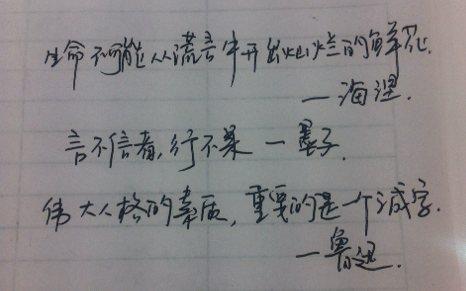 生命不可能从谎言中开出灿烂的鲜花
—海涅.
言不信者,行不果 —墨子.
伟大人格的素质,重要的是一个诚字.
—鲁迅.